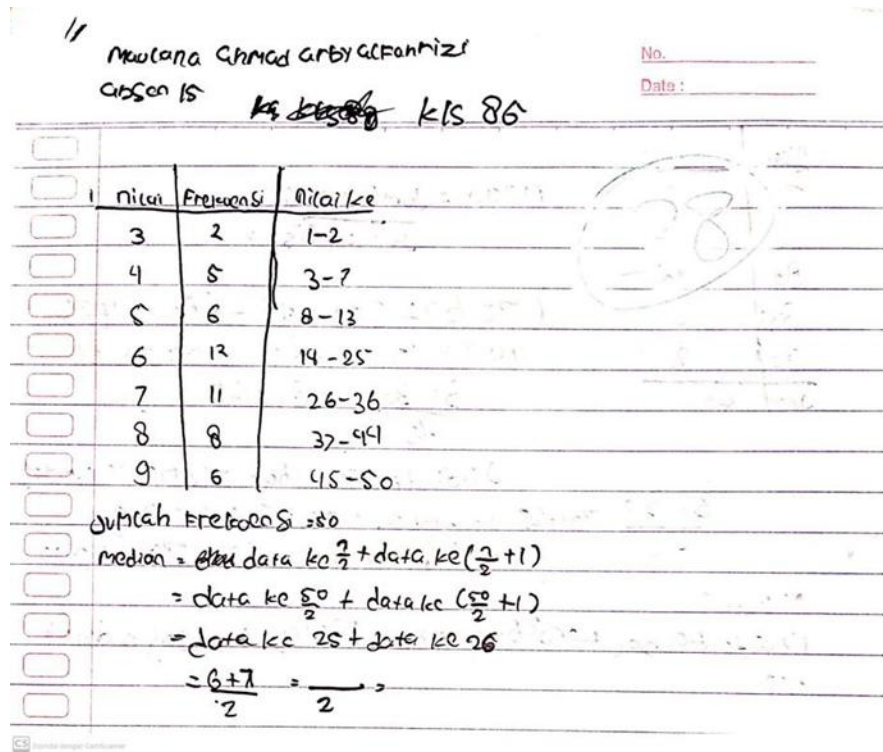 11
Maulana Ahmad Arby alFahrizi
No.
absen 15
Date :
kls 8G
28
1 nilai Frekuensi nilai ke
3 2 1-2
4 5 3-7
5 6 8-13
6 12 14-25
7 11 26-36
8 8 37-44
9 6 45-50
Jumlah Frekuensi = 50
median = data ke n/2 + data ke (n/2 + 1)
= data ke 50/2 + data ke (50/2 + 1)
= data ke 25 + data ke 26
= 6+7/2 = /2 =
CS